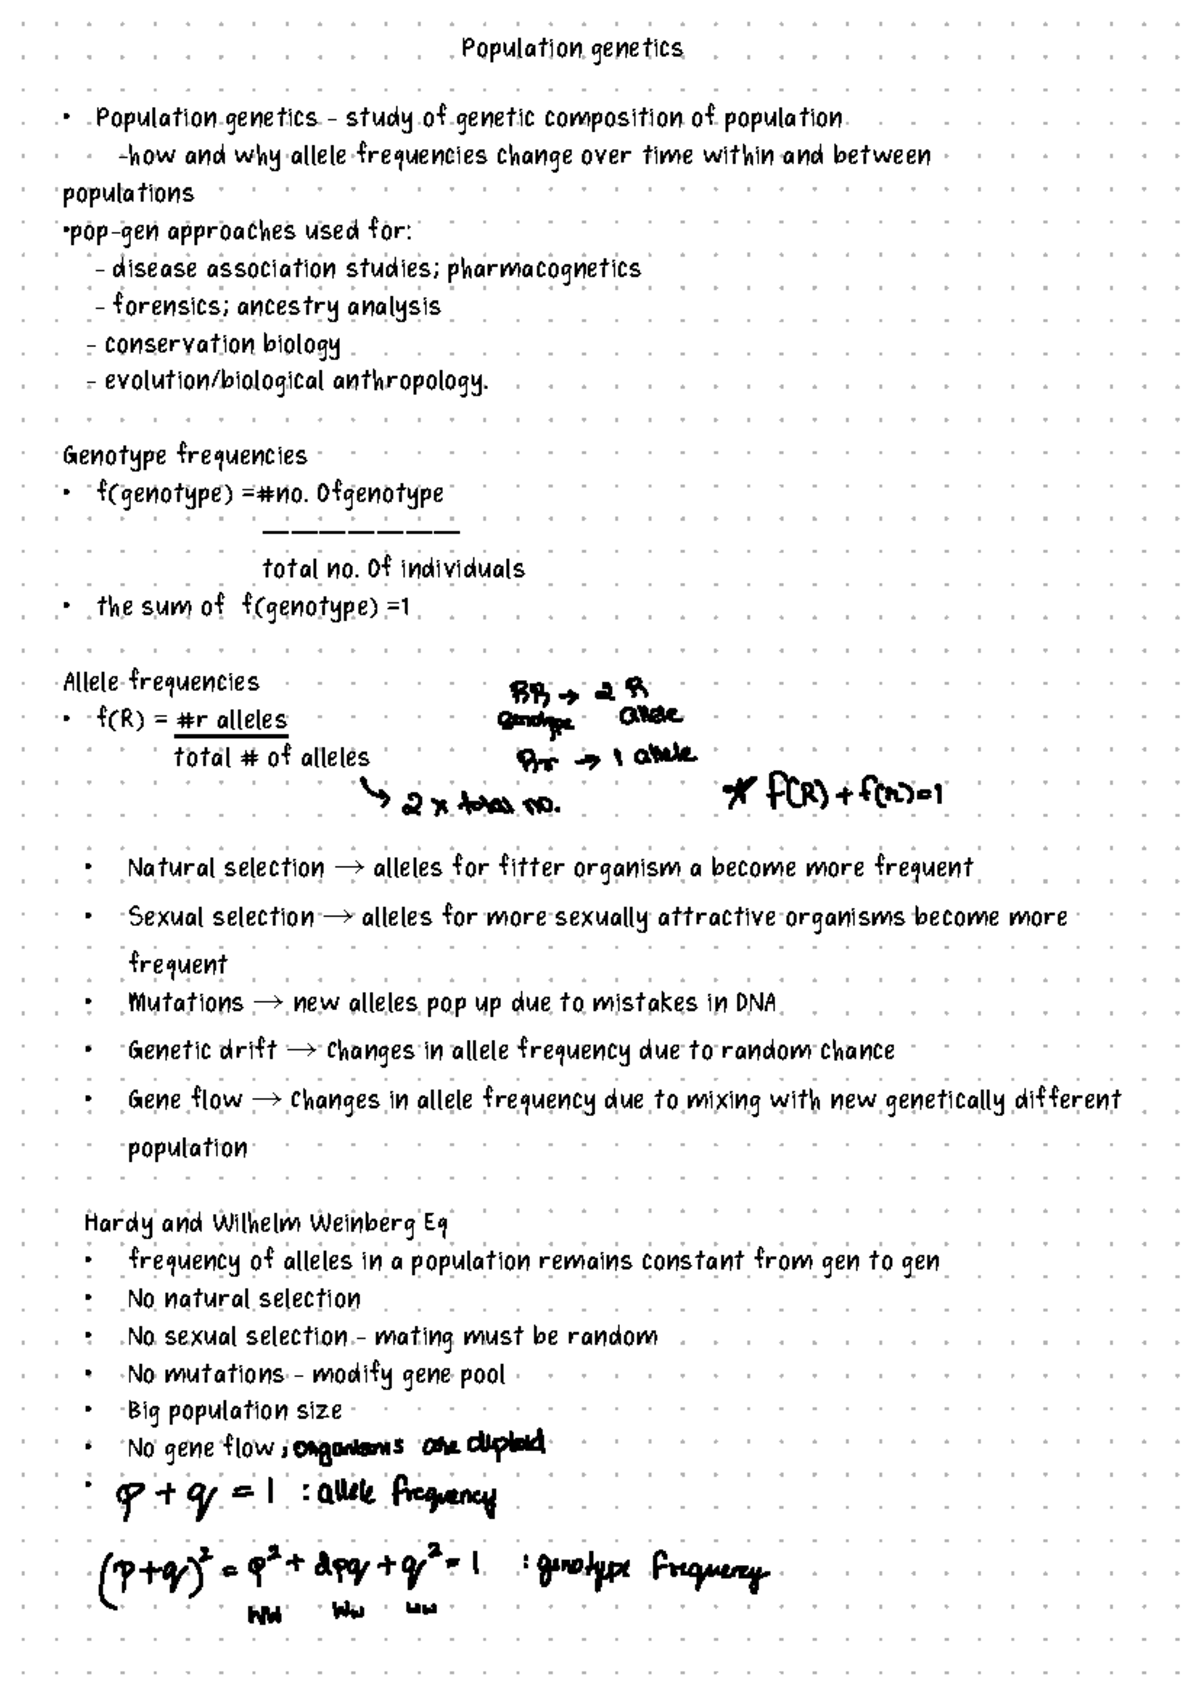 Population genetics
• Population genetics - study of genetic composition of population
-how and why allele frequencies change over time within and between
populations
•pop-gen approaches used for:
- disease association studies; pharmacognetics
- forensics; ancestry analysis
- conservation biology
- evolution/biological anthropology.
Genotype frequencies
• f(genotype) =#no. Ofgenotype
————————
total no. Of individuals
• the sum of f(genotype) =1
Allele frequencies
• f(R) = #r alleles
total # of alleles
↳ 2 x total no.
RR → 2 R
genotype allele
Rr → 1 allele
* f(R) + f(r)=1
• Natural selection → alleles for fitter organism a become more frequent
• Sexual selection → alleles for more sexually attractive organisms become more
frequent
• Mutations → new alleles pop up due to mistakes in DNA
• Genetic drift → Changes in allele frequency due to random chance
• Gene flow → Changes in allele frequency due to mixing with new genetically different
population
Hardy and Wilhelm Weinberg Eq
• frequency of alleles in a population remains constant from gen to gen
• No natural selection
• No sexual selection - mating must be random
• No mutations - modify gene pool
• Big population size
• No gene flow ; organisms are diploid
• p + q = 1 : allele frequency
(p+q)² = p² + 2pq + q² = 1 : genotype frequency
WW Ww ww